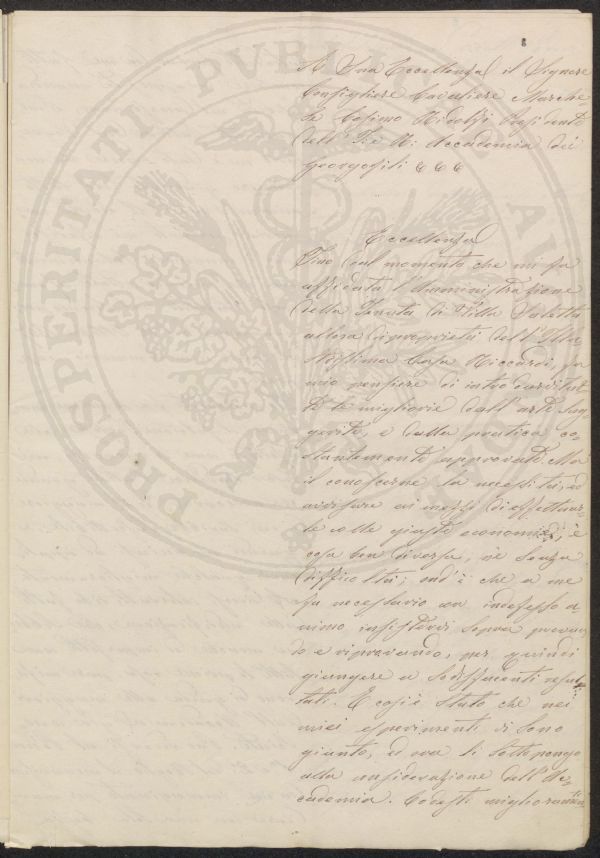 A Sua Eccellenza il Signore
Consigliere Cavaliere Marche=
se Cosimo Ridolfi Presidente
dell' I. e R. Accademia dei
Georgofili
Eccellenza
Fino dal momento che mi fu
affidata l'Amministrazione
della Tenuta di Villa Saletta
allora di proprietà dell' Illu
strissima Casa Riccardi, fu
mio pensiere di introdurvi tut=
te le migliorie dall' arte sug
gerite, e dalla pratica co=
stantemente approvate. Ma
il conoscerne la necessità, ed
avvisare ai mezzi di effettuar=
le colle giuste economie, è
cosa ben diversa, nè senza
difficoltà; ond'è che a me
fu necessario con indefesso a
nimo insistervi sopra provan
do e riprovando, per quindi
giungere a sodisfacenti resul=
tati. E così è stato che nei
miei esperimenti vi sono
giunto, ed ora li sottopongo
alla considerazione dell' Ac=
cademia. Codesti miglioramenti
PROSPERITATI PVBLICAE AVGENDAE